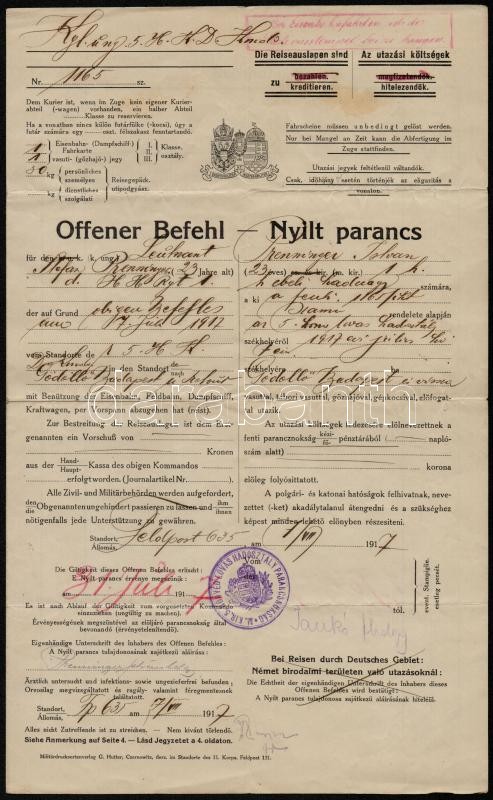 Kgl. ung. 5. H. K. D. Kmdo.
Nr. 1165 sz.
Die Reiseauslagen sind
zu bezahlen.
kreditieren.
Az utazási költségek
megfizetendők.
hitelezendők.
Dem Kurier ist, wenn im Zuge kein eigener Kurier-
abteil (-wagen) vorhanden, ein halber Abteil
Klasse zu reservieren.
Ha a vonatban nincs külön futárfülke (-kocsi), úgy a
futár számára egy oszt. félszakasz fenntartandó.
Eisenbahn- (Dampfschiff-)
Fahrkarte
vasuti- (gőzhajó-) jegy
I.
II.
III.
Klasse
osztály.
kg persönliches
személyes
kg dienstliches
szolgálati
Reisegepäck.
utipodgyász.
Fahrscheine müssen unbedingt gelöst werden.
Nur bei Mangel an Zeit kann die Abfertigung im
Zuge stattfinden.
Utazási jegyek feltétlenül váltandók.
Csak, időhiány esetén történjék az eligazítás a
vonaton.
Offener Befehl — Nyilt parancs
für den k. u. k. (k. ung.) Leutnant
Stefan Renninger (23 Jahre alt)
d. H. H. Rgt. 1.
der auf Grund obigen Befehles
am 17. Juli 1917
vom Standorte des 5. H. K.
in den Standort des nach
Gödöllő Budapest
mit Benützung der Eisenbahn, Feldbahn, Dampfschiff,
Kraftwagen, per Vorspann abzugehen hat (reist).
Zur Bestreitung der Reiseauslagen ist dem Ex-
genannten ein Vorschuß von
Kronen
aus der Hand-
Haupt- Kassa des obigen Kommandos
erfolgt worden. (Journalartikel Nr.
Alle Zivil- und Militärbehörden werden aufgefordert,
den
die Obgenannten ungehindert passieren zu lassen und ihm
ihnen
nötigenfalls jede Unterstützung zu gewähren.
Renninger István
(23 éves) cs. és kir. (m. kir.) 1. h.
hadnagy számára,
a ki a fenti 1165 sz.
rendelete alapján
az 5. honv. lovas hadosztály
székhelyéről 1917 évi július hó
székhelyére ba
Gödöllő Budapest
vasúttal, tábori vasuttal, gőzhajóval, gépkocsival, előfogat-
tal utazik.
Az utazási költségek fedezésére előlnevezettnek a
fenti parancsnokság kézi-
fő- pénztárából ( napló-
szám alatt) korona
előleg folyósíttatott.
A polgári- és katonai hatóságok felhivatnak, neve-
zettet (-ket) akadálytalanul átengedni és a szükséghez
képest minden lehető előnyben részesíteni.
Standort,
Állomás, Feldpost 635 am 7/VII 1917
Die Gültigkeit dieses Offenen Befehles erlischt:
E Nyilt parancs érvénye megszűnik:
am 31. Juli 1917 tól.
event. Stampiglie.
esetleg pecsét.
Es ist nach Ablauf der Gültigkeit vom vorgesetzten Kommando
einzuziehen (ungültig zu machen).
Érvényességének megszűntével az előljáró parancsnokság által
bevonandó (érvénytelenítendő).
Eigenhändige Unterschrift des Inhabers dieses Offenen Befehles:
A Nyilt parancs tulajdonosának sajátkezű aláírása:
Renninger
Bei Reisen durch Deutsches Gebiet:
Német birodalmi területen való utazásoknál:
Die Echtheit der eigenhändigen Unterschrift des Inhabers dieses
Offenen Befehles wird bestätigt:
A Nyilt parancs tulajdonosának sajátkezű aláírásának hiteléül.
Ärztlich untersucht und infektions- sowie ungezieferfrei befunden,
Orvosilag megvizsgáltatott és ragály-valamint féregmentesnek
találtatott.
Standort,
Állomás, Fp 635 am 7/VII 1917
Alles nicht Zutreffende ist zu streichen. — Nem kívánt törlendő.
Siehe Anmerkung auf Seite 4. — Lásd Jegyzetet a 4. oldalon.
Militärdrucksortenverlag G. Hutter, Czernowitz, derz. im Standorte des 11. Korps. Feldpost 121.
darabanth